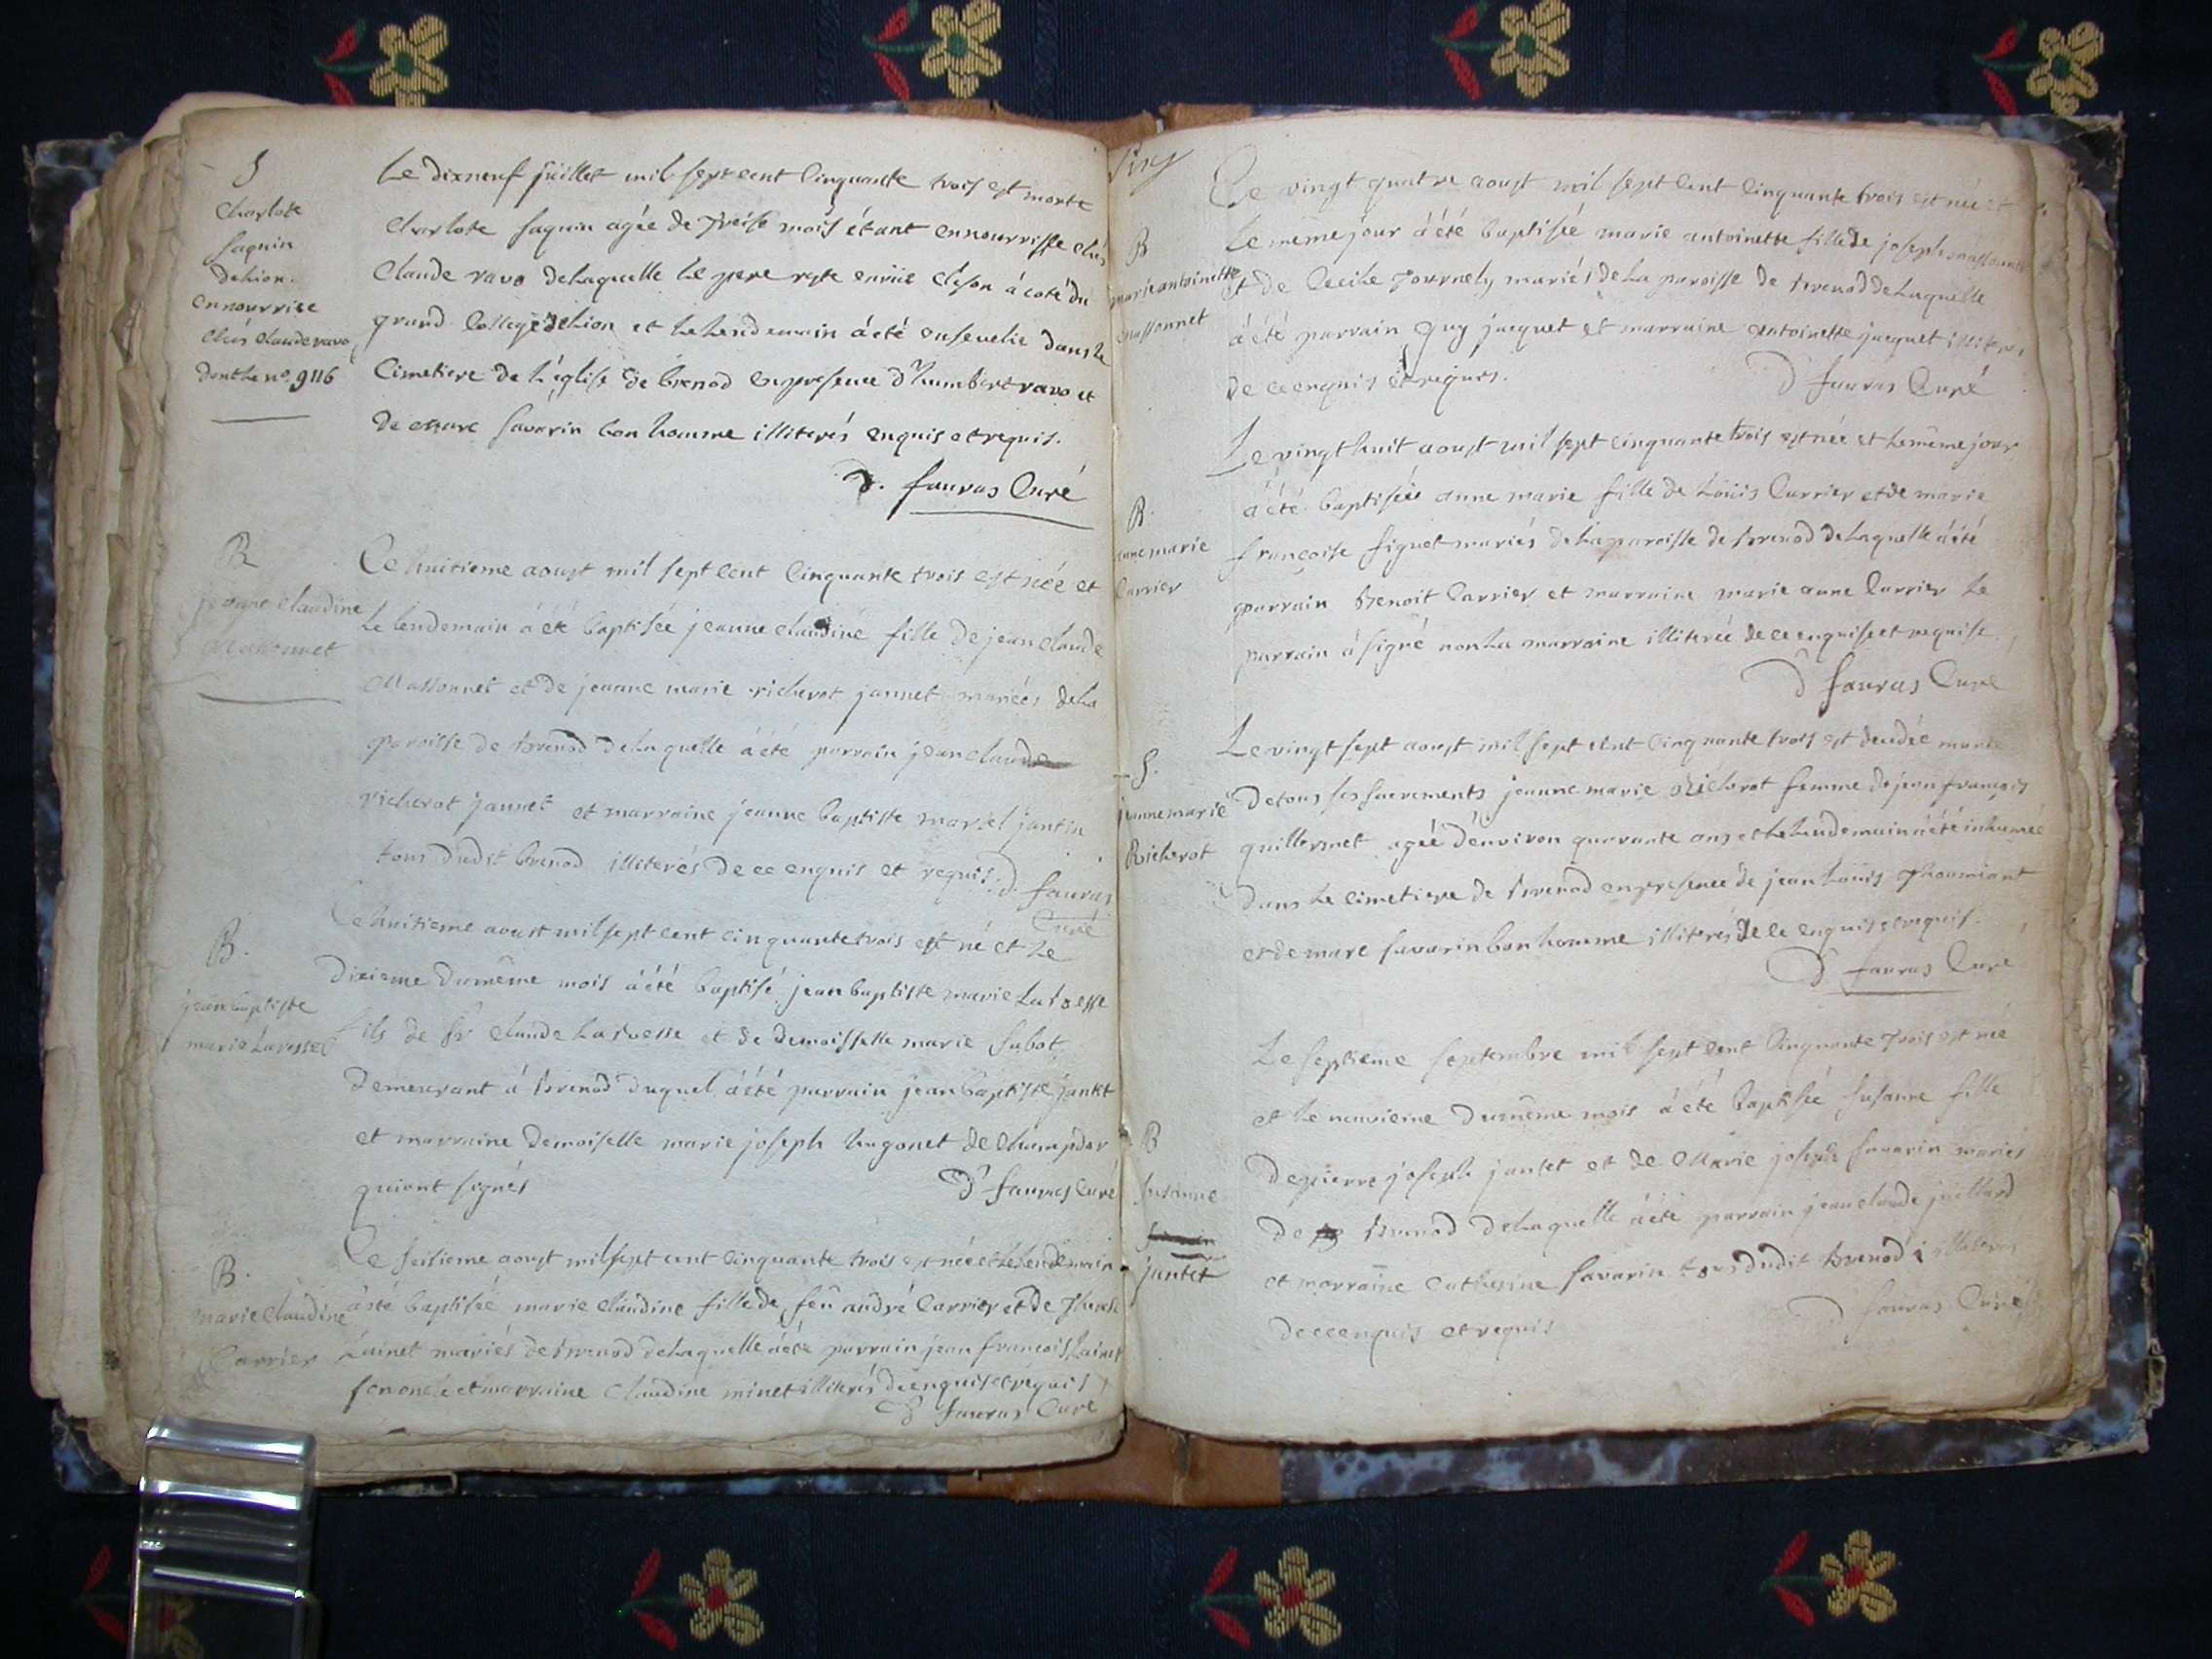 S
Charlote
faquin
de Lion
en nourrice
chés claude ravo
dont le n°. 9116
Le dixneuf juillet mil sept cent cinquante trois est morte
Charlote faquin agée de treise mois étant en nourrisse chés
Claude ravo de laquelle le pere reste
a coté du
grand College de Lion et le lendemain á été ensevelie dans le
Cimetiere de l'église de brenod en presence d'humbert ravo et
de marc Savarin bon homme illiterés enquis et requis.
d. fauras Curé
B
jeanne claudine
Massonnet
Le huitieme aoust mil sept cent cinquante trois est née et
le lendemain á été baptisée jeanne claudine fille de jean claude
Massonnet et de jeanne marie richerot jannet mariés de la
paroisse de brenod de laquelle á été parrain jean claude
richerot jannet et marraine jeanne baptiste martel jantin
tous dudit brenod illiterés de ce enquis et requis. d. fauras
Curé
B.
jean baptiste
marie
Le huitieme aoust mil sept cent cinquante trois est né et le
dixieme du même mois á été baptisé jean baptiste marie
fils de Sr claude
et de demoisselle marie
demeurant á brenod duquel á été parrain jean baptiste jantet
et marraine demoiselle marie joseph hugonet de champdor
qui ont signés
d. fauras Curé
B.
marie claudine
Carrier
Le seitieme aoust mil sept cent cinquante trois est née et le lendemain
á été baptisée marie claudine fille de feû andré Carrier et de therese
Lainet mariés de brenod de laquelle á été parrain jean françois Lainet
son oncle et marraine claudine minet illiterés de enquis et requis
d. fauras Curé
B
marie antoinette
massonnet
Le vingt quatre aoust mil sept cent cinquante trois est née et
le même jour á été baptisée marie antoinette fille de joseph massonnet
et de Cecile tournely mariés de la paroisse de brenod de laquelle
á été parrain guy jacquet et marraine antoinette jacquet illiterés
de ce enquis et requis.
d fauras Curé
B.
anne marie
Carrier
Le vingt huit aoust mil sept cinquante trois est née et le même jour
á été baptisée anne marie fille de Loüis Carrier et de marie
françoise figuet mariés de la paroisse de brenod de laquelle á été
parrain benoit Carrier et marraine marie anne Carrier le
parrain á signé non la marraine illiterée de ce enquise et requise.
d fauras Curé
S.
jeanne marie
Richerot
Le vingt sept aoust mil sept cent cinquante trois est decedée munie
de tous ses sacrements jeanne marie Richerot femme de jean françois
guillermet agée d'environ quarante ans et le lendemain á été inhumée
dans le cimetiere de brenod en presence de jean Loüis
et de marc savarin bon homme illiterés de ce enquis et requis.
d fauras Curé
B
susanne
jantet
Le septieme septembre mil sept cent cinquante trois est née
et le neuvieme du même mois á été baptisée susanne fille
de pierre joseph jantet et de Marie joseph savarin mariés
de brenod de laquelle á été parrain jean claude juillard
et marraine Catherine savarin tous dudit brenod illiterés
de ce enquis et requis
d fauras Curé